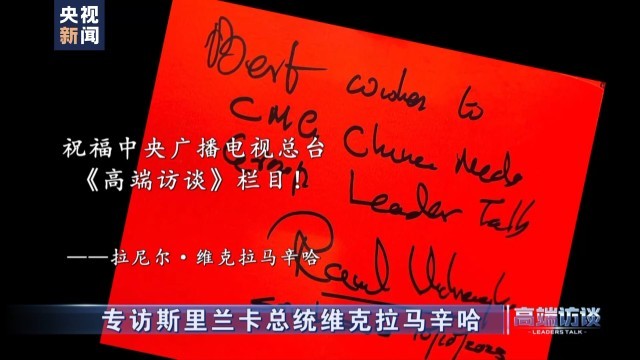 央视
新闻
Best wishes to
CMG China Media
Group Leader Talk
祝福中央广播电视总台
《高端访谈》栏目！
——拉尼尔·维克拉马辛哈
10/10/2023
专访斯里兰卡总统维克拉马辛哈
高端访谈
LEADERS TALK